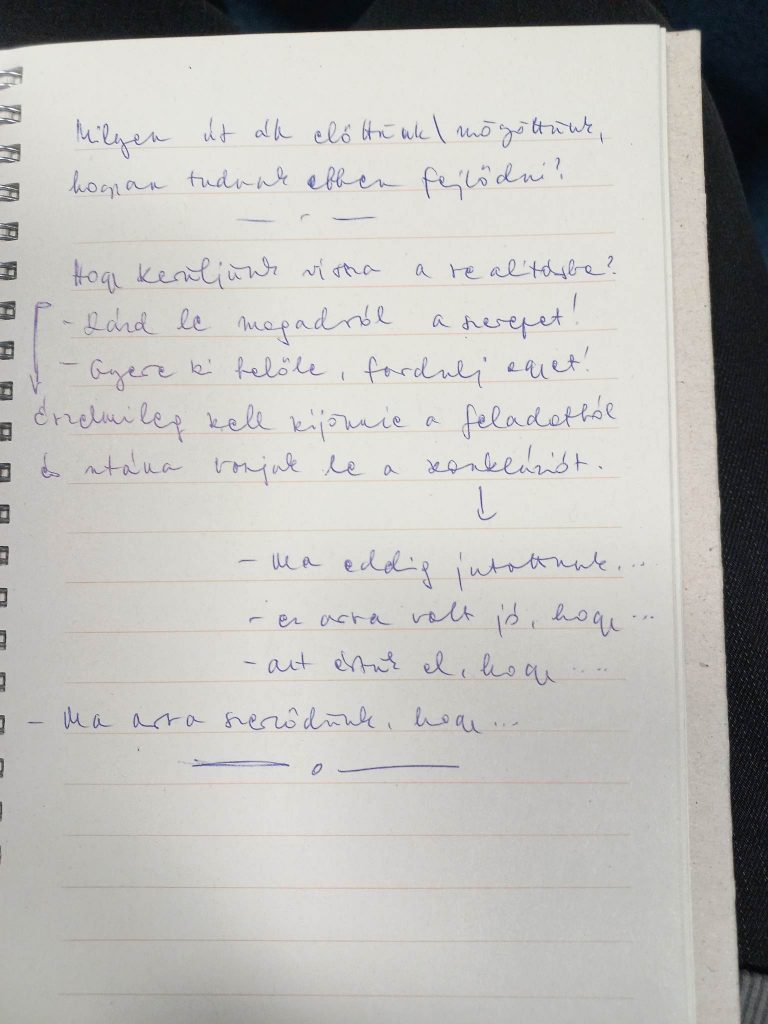 Milyen út áll előttünk\mögöttünk,
hogyan tudunk ebben fejlődni?
Hogy kerüljünk vissza a realitásba?
- Rázd le magadról a szerepet!
- Gyere ki belőle, fordulj egyet!
érzelmileg kell kijönnie a feladatból
és utána vonjuk le a konklúziót.
- Ma eddig jutottunk...
- ez arra volt jó, hogy ...
- azt értük el, hogy ....
- Ma arra szerződünk, hogy ...